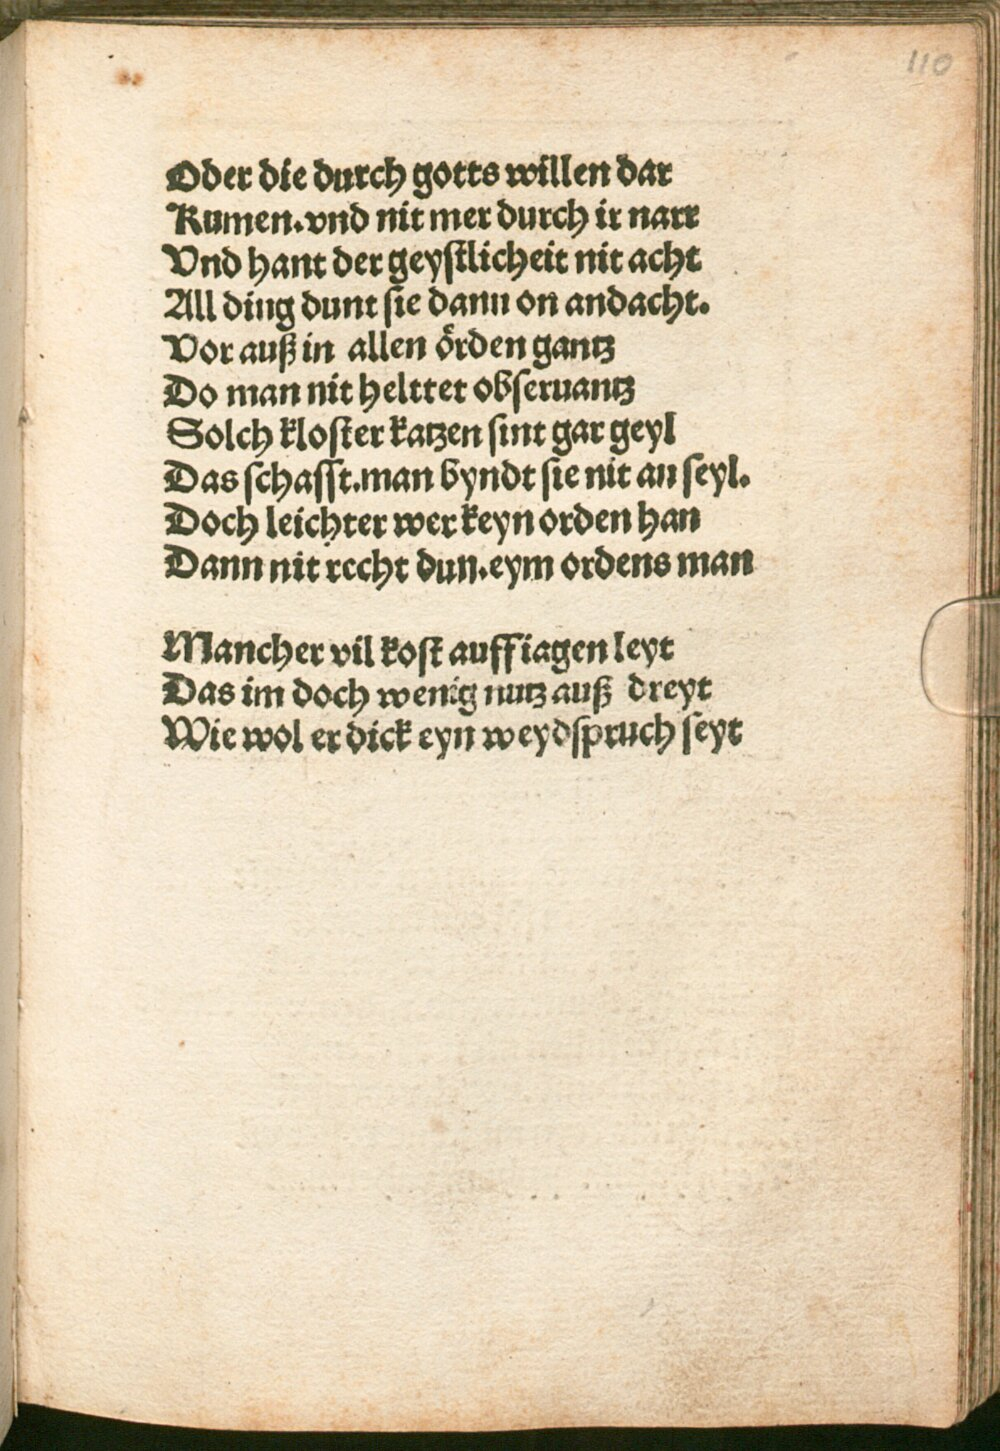 110
Oder die durch gotts willen dar
Kumen. vnd nit mer durch ir narr
Vnd hant der geyſtlicheit nit acht
All ding dunt ſie dann on andacht.
Vor auß in allen oͤrden gantz
Do man nit helttet obſeruantz
Solch kloſter katzen ſint gar geyl
Das ſchafft. man byndt ſie nit an ſeyl.
Doch leichter wer keyn orden han
Dann nit recht dun. eym ordens man
Mancher vil koſt auff iagen leyt
Das im doch wenig nutz auß dreyt
Wie wol er dick eyn weydſpruch ſeyt